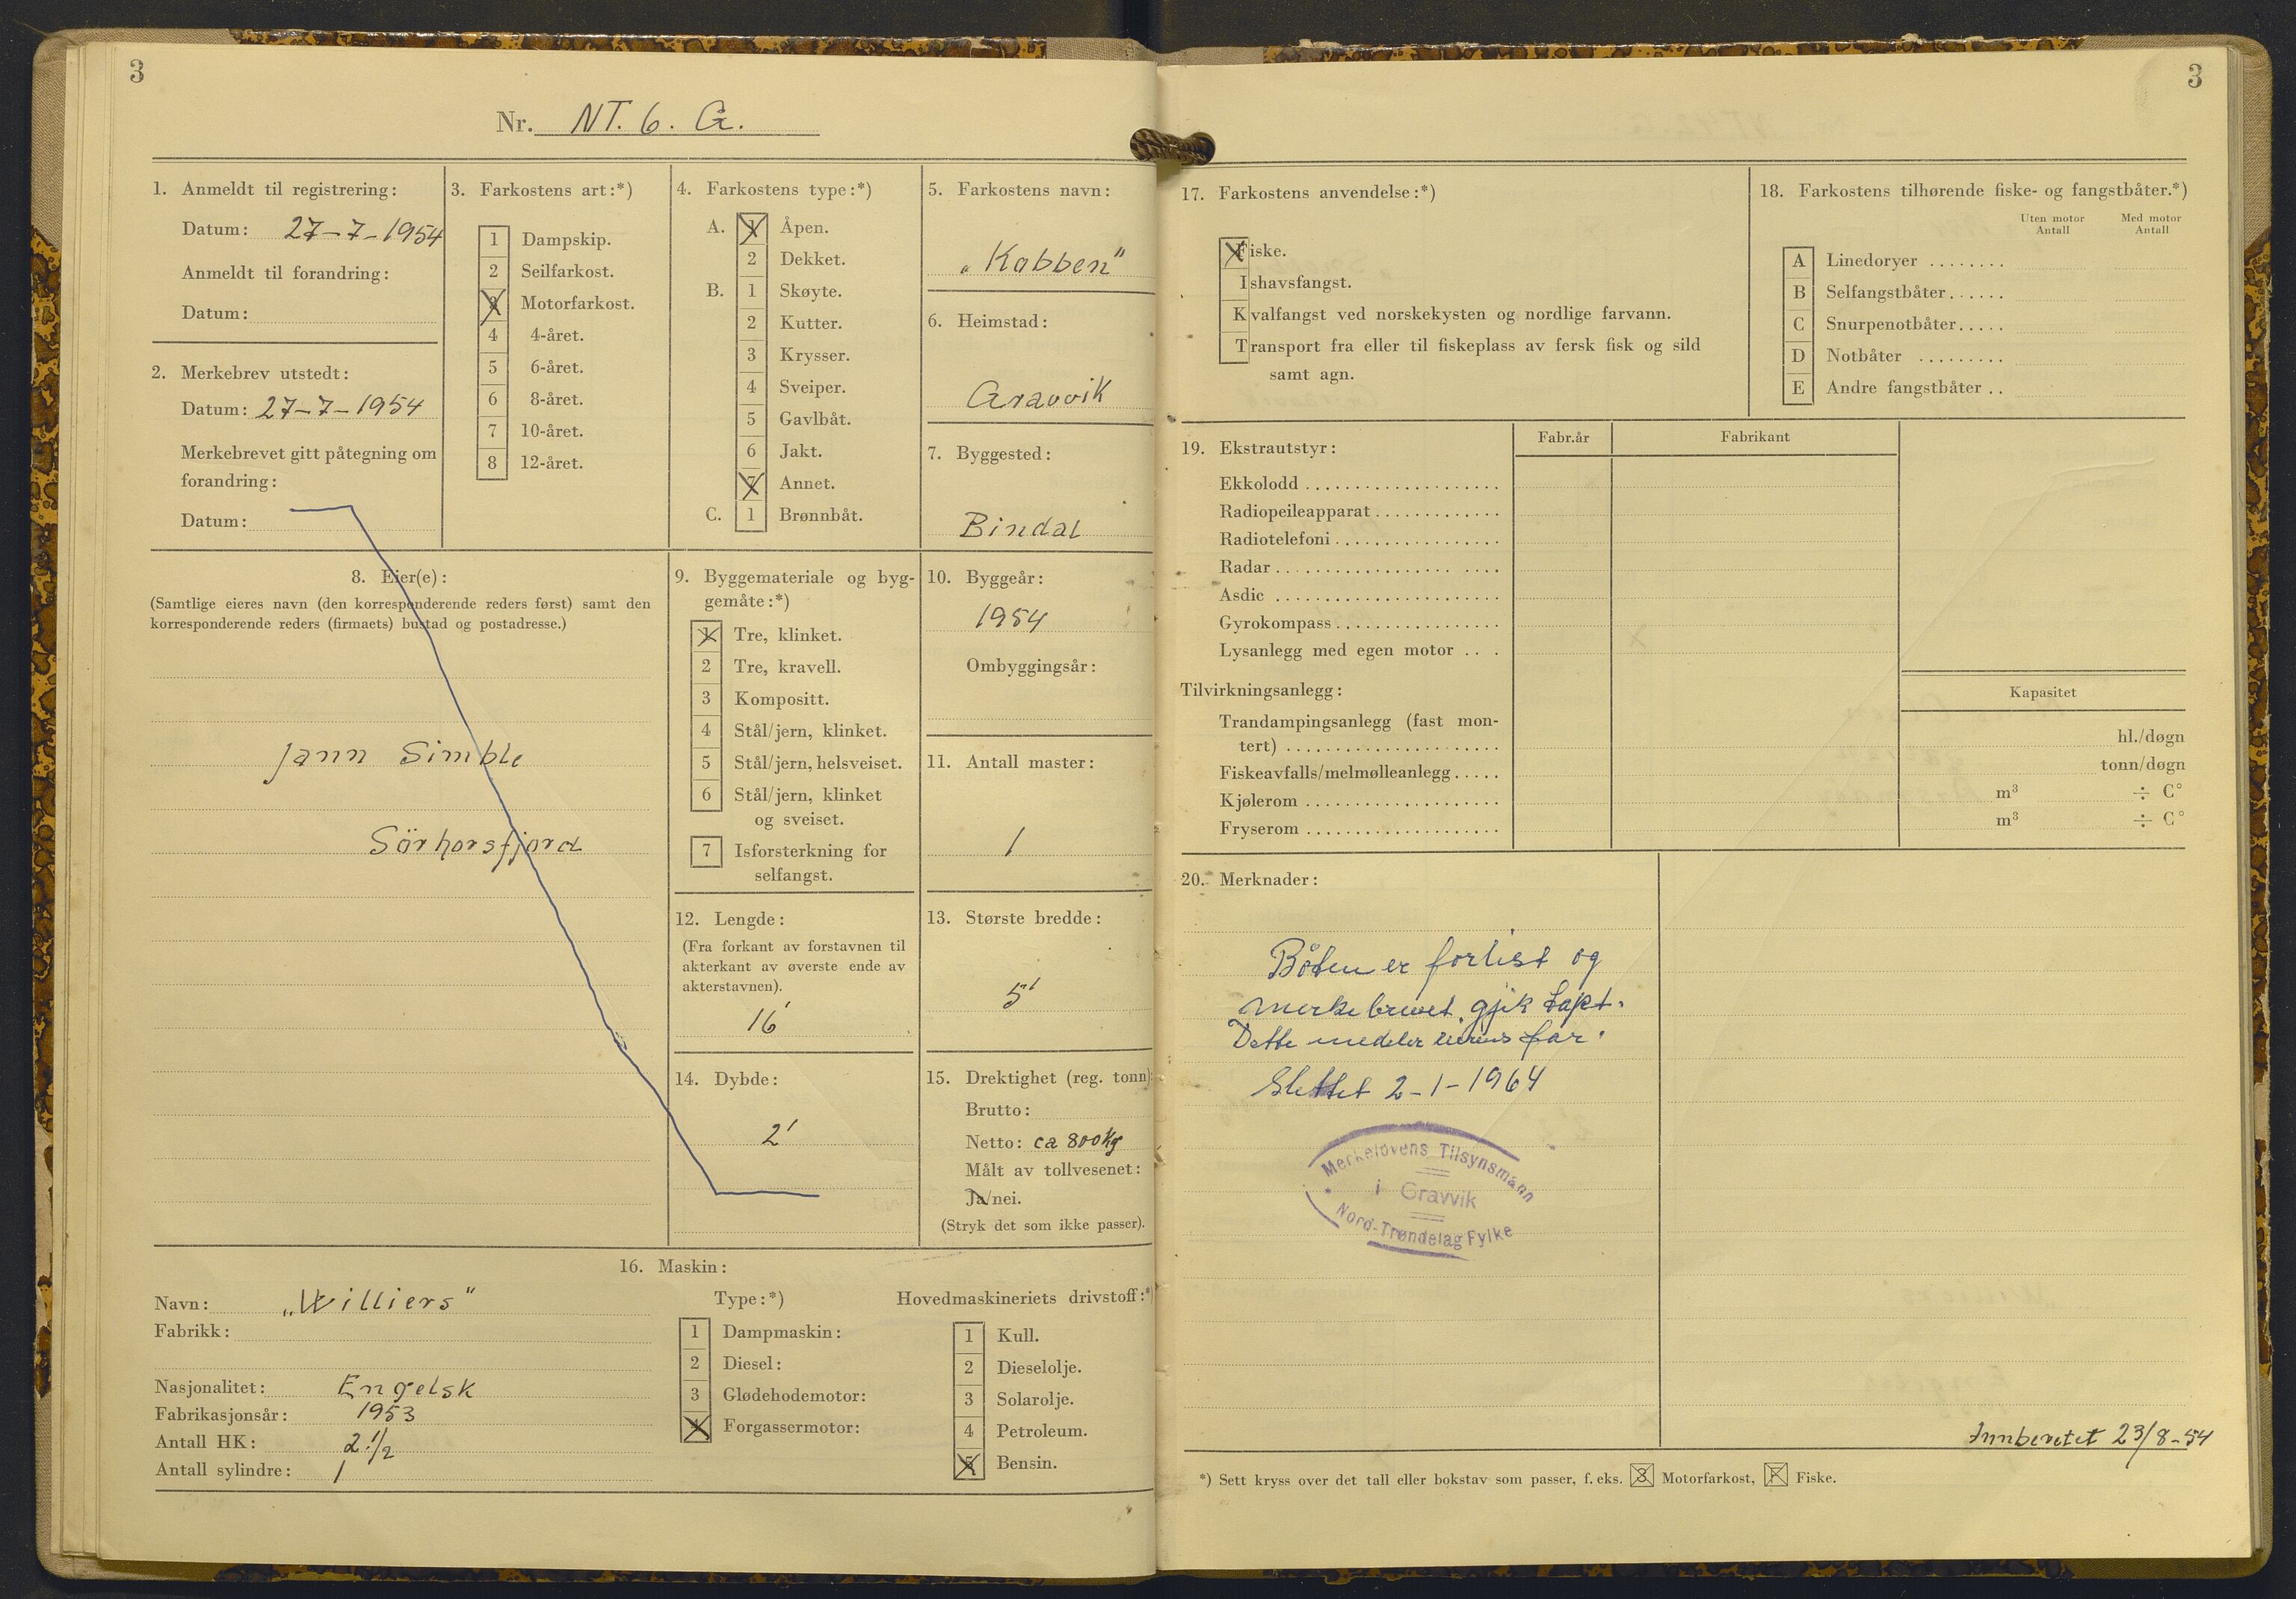 3
Nr. NT. 6. G.
1. Anmeldt til registrering:
Datum: 27-7-1954
Anmeldt til forandring:
Datum:
2. Merkebrev utstedt:
Datum: 27-7-1954
Merkebrevet gitt påtegning om
forandring:
Datum:
3. Farkostens art:*)
1 Dampskip.
2 Seilfarkost.
3 Motorfarkost.
4 4-året.
5 6-året.
6 8-året.
7 10-året.
8 12-året.
4. Farkostens type:*)
A. 1 Åpen.
2 Dekket.
B. 1 Skøyte.
2 Kutter.
3 Krysser.
4 Sveiper.
5 Gavlbåt.
6 Jakt.
7 Annet.
C. 1 Brønnbåt.
5. Farkostens navn:
"Kobben"
6. Heimstad:
Gravvik
7. Byggested:
Bindal
8. Eier(e):
(Samtlige eieres navn (den korresponderende reders først) samt den
korresponderende reders (firmaets) bustad og postadresse.)
Jann Simble
Sörhorsfjord
9. Byggemateriale og byg-
gemåte:*)
1 Tre, klinket.
2 Tre, kravell.
3 Kompositt.
4 Stål/jern, klinket.
5 Stål/jern, helsveiset.
6 Stål/jern, klinket
og sveiset.
7 Isforsterkning for
selfangst.
10. Byggeår:
1954
Ombyggingsår:
11. Antall master:
1
12. Lengde:
(Fra forkant av forstavnen til
akterkant av øverste ende av
akterstavnen).
16'
13. Største bredde:
5'
14. Dybde:
2'
15. Drektighet (reg. tonn):
Brutto:
Netto: ca 800 kg
Målt av tollvesenet:
Ja/nei.
(Stryk det som ikke passer).
16. Maskin:
Navn: "Williers"
Fabrikk:
Nasjonalitet: Engelsk
Fabrikasjonsår: 1953
Antall HK: 2 1/2
Antall sylindre: 1
Type:*)
1 Dampmaskin:
2 Diesel:
3 Glødehodemotor:
4 Forgassermotor:
Hovedmaskineriets drivstoff:*)
1 Kull.
2 Dieselolje.
3 Solarolje.
4 Petroleum.
5 Bensin.
3
17. Farkostens anvendelse:*)
Fiske.
Ishavsfangst.
Kvalfangst ved norskekysten og nordlige farvann.
Transport fra eller til fiskeplass av fersk fisk og sild
samt agn.
18. Farkostens tilhørende fiske- og fangstbåter.*)
Uten motor Med motor
Antall Antall
A Linedoryer ........
B Selfangstbåter......
C Snurpenotbåter.....
D Notbåter .........
E Andre fangstbåter ..
19. Ekstrautstyr:
Fabr.år Fabrikant
Ekkolodd
Radiopeileapparat
Radiotelefoni
Radar
Asdic
Gyrokompass
Lysanlegg med egen motor
Tilvirkningsanlegg:
Kapasitet
Trandampingsanlegg (fast mon-
tert) hl./døgn
Fiskeavfalls/melmølleanlegg tonn/døgn
Kjølerom m³ ÷ C°
Fryserom m³ ÷ C°
20. Merknader:
Båten er forlist og
merkebrevet gjik tapt.
Dette medeler eierens far.
Slettet 2-1-1964
Merkelovens Tilsynsmann
i Gravvik
Nord-Trøndelag Fylke
Innberetet 23/8-54
*) Sett kryss over det tall eller bokstav som passer, f. eks. 3 Motorfarkost, F Fiske.